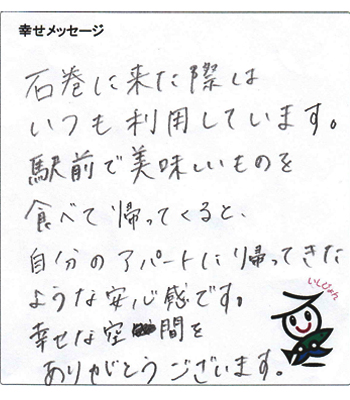 幸せメッセージ
石巻に来た際は
いつも利用しています。
駅前で美味しいものを
食べて帰ってくると、
自分のアパートに帰ってきた
ような安心感です。
幸せな空間を
ありがとうございます。
いしぴょん